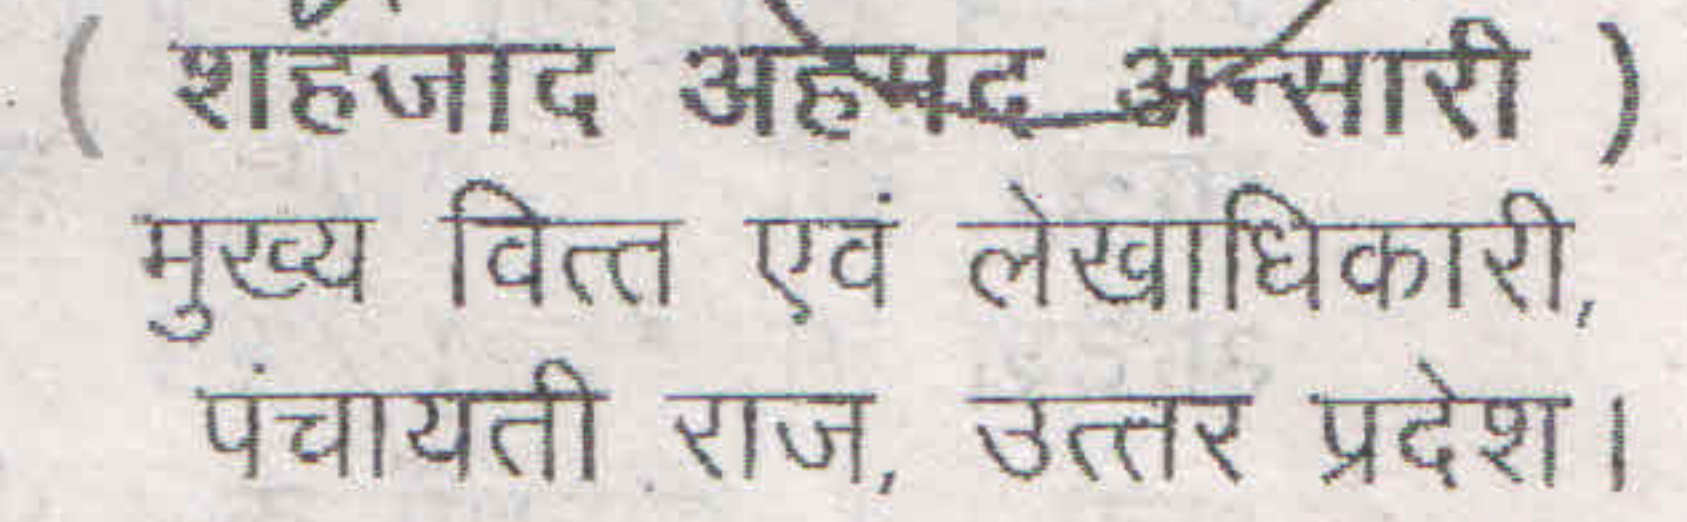 ( शहजाद अहमद अन्सारी )
मुख्य वित्त एवं लेखाधिकारी,
पंचायती राज, उत्तर प्रदेश।